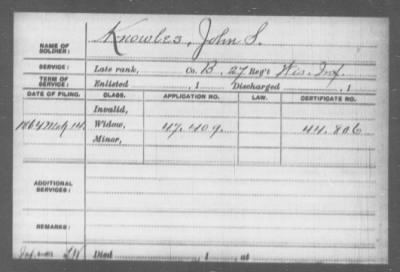 NAME OF SOLDIER: Knowles, John S.
SERVICE: Late rank, Co. B. 27 Reg't Wis. Inf.
TERM OF SERVICE: Enlisted , 1 Discharged , 1
DATE OF FILING. CLASS. APPLICATION NO. LAW. CERTIFICATE NO.
Invalid,
1864 Mch 14. Widow, 47.409. 44.806
Minor,
ADDITIONAL SERVICES:
REMARKS:
Died , 1 at